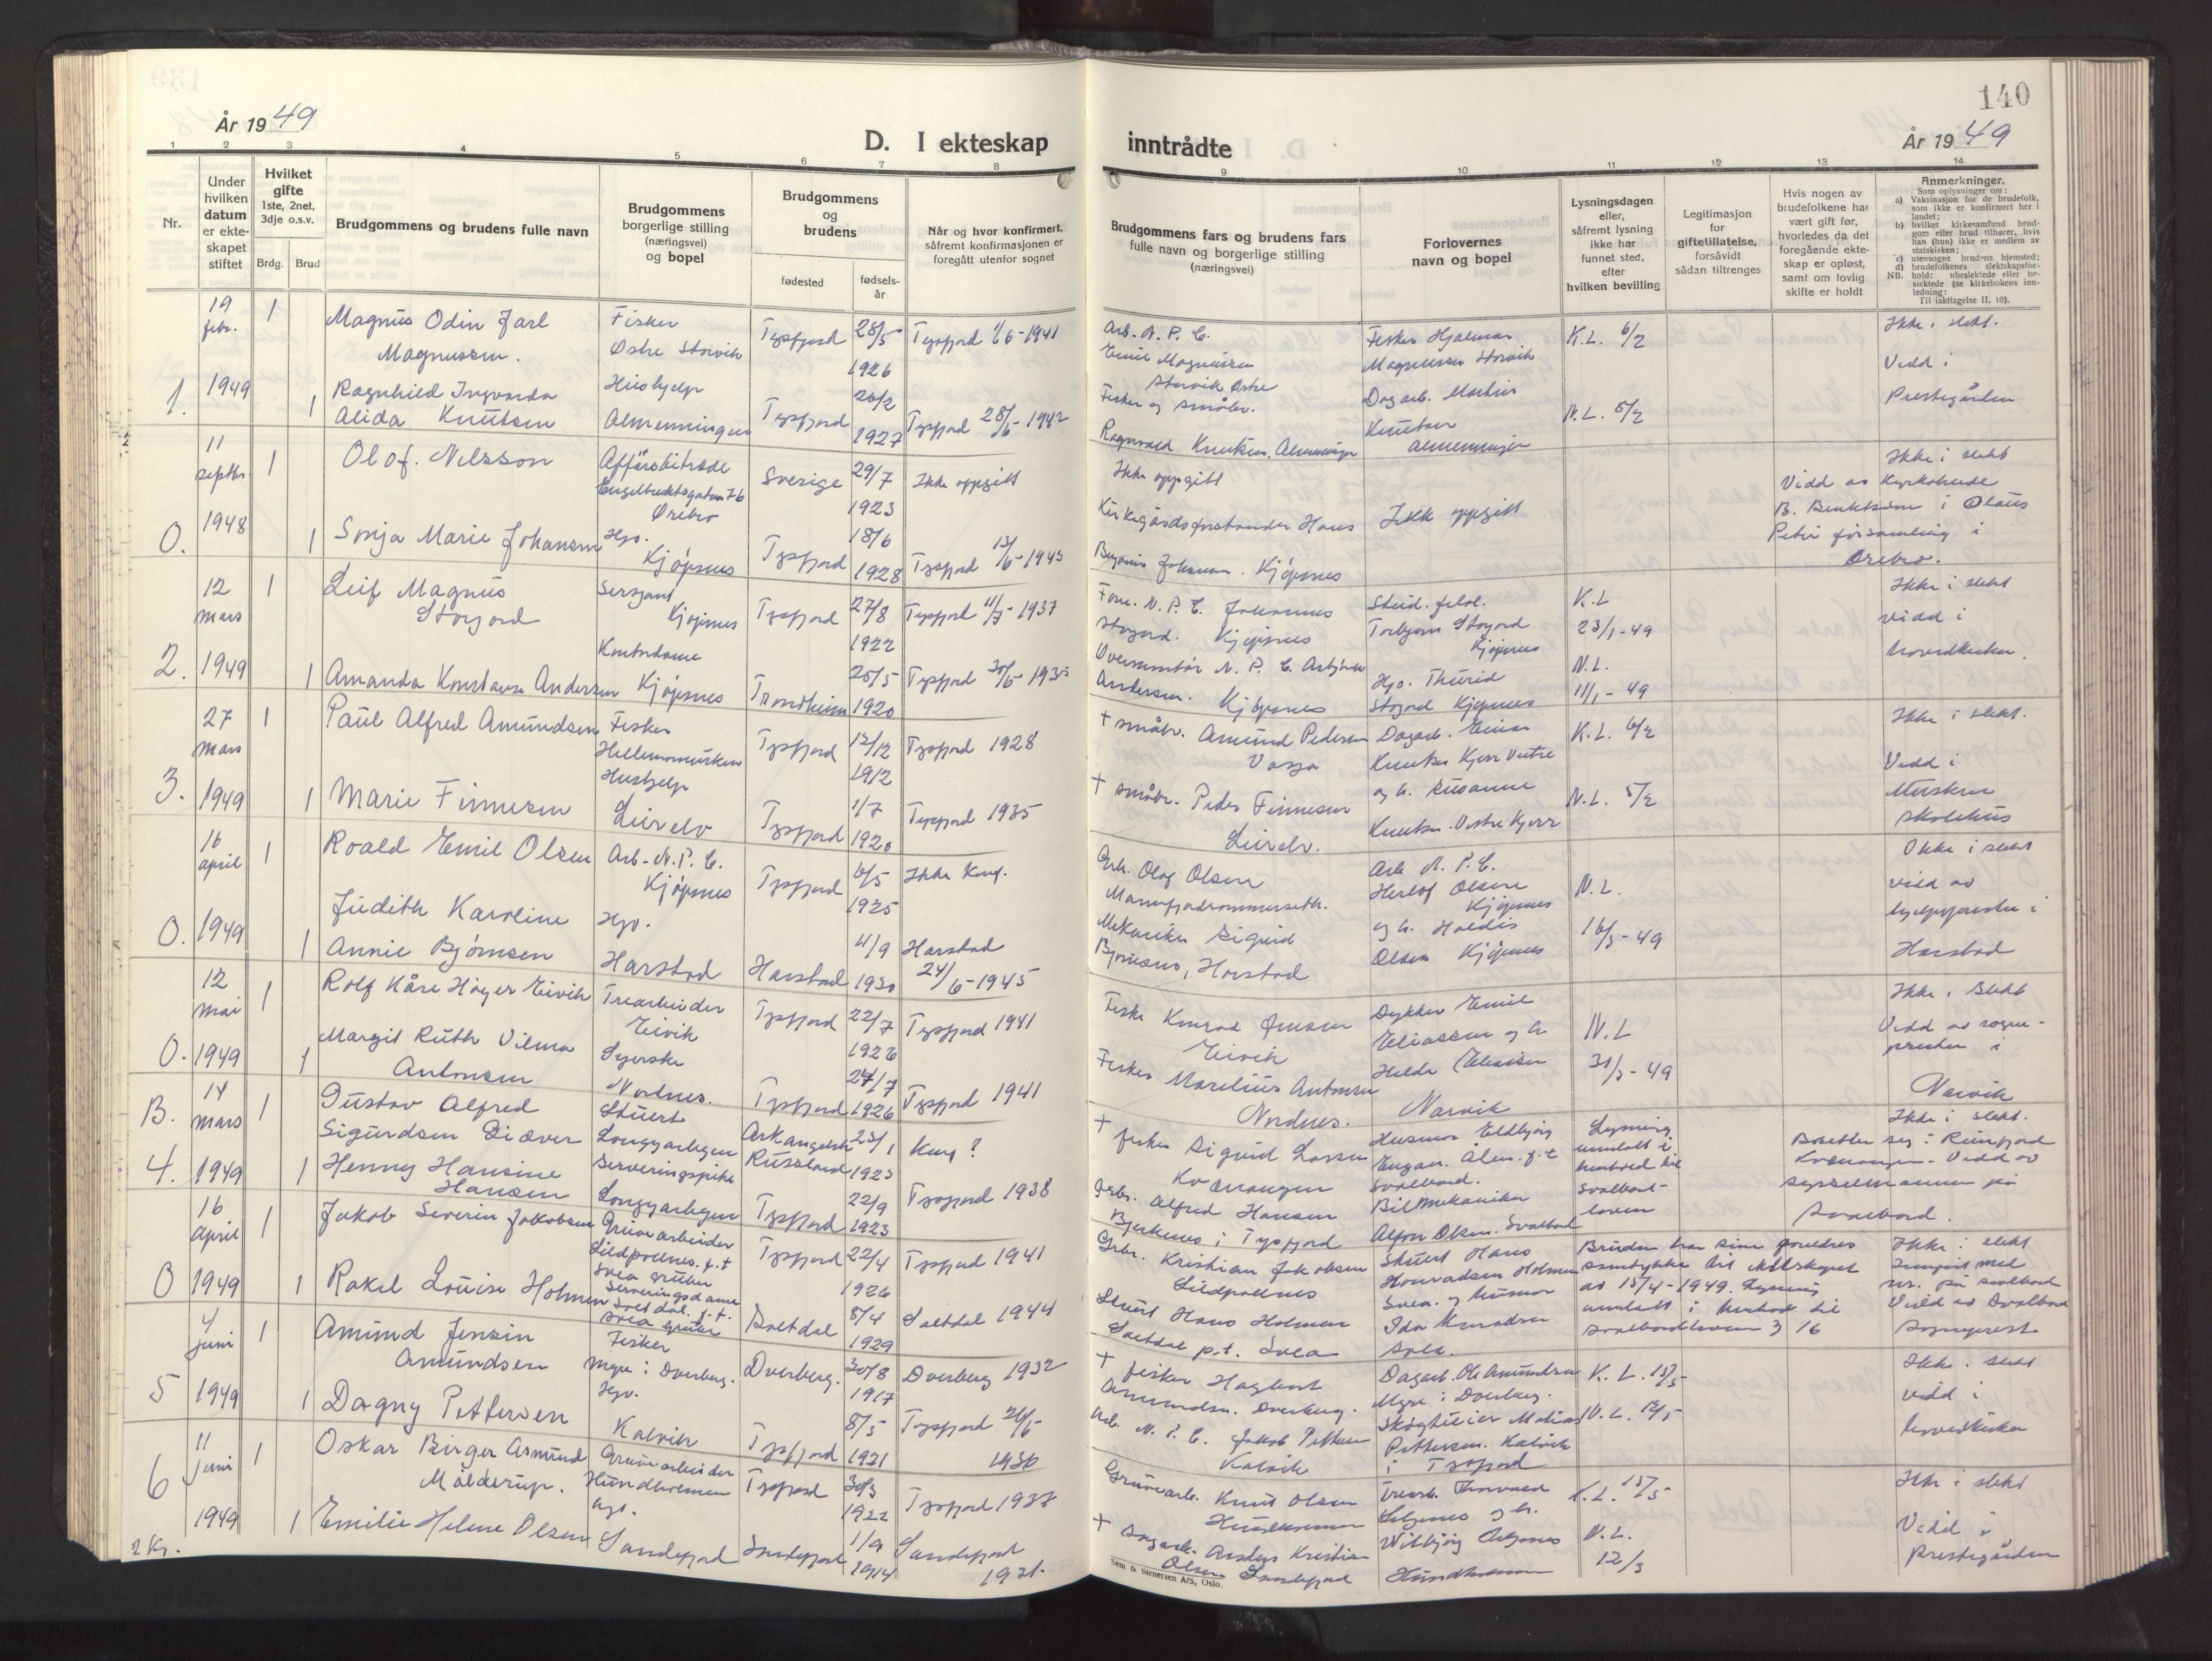 140
År 1949
D. I ekteskap inntrådte
År 1949
1 2 3 4 5 6 7 8 9 10 11 12 13 14
Nr.
Under hvilken datum er ekte-skapet stiftet
Hvilket gifte 1ste, 2net, 3dje o.s.v.
Brdg. Brud
Brudgommens og brudens fulle navn
Brudgommens borgerlige stilling (næringsvei) og bopel
Brudgommens og brudens
fødested
fødsels-år
Når og hvor konfirmert, såfremt konfirmasjonen er foregått utenfor sognet
Brudgommens fars og brudens fars fulle navn og borgerlige stilling (næringsvei)
Forlovernes navn og bopel
Lysningsdagen eller, såfremt lysning ikke har funnet sted, efter hvilken bevilling
Legitimasjon for giftetillatelse, forsåvidt sådan tiltrenges
Hvis nogen av brudefolkene har vært gift før, hvorledes da det foregående ekte-skap er opløst, samt om lovlig skifte er holdt
Anmerkninger.
Som oplysninger om:
a) Vaksinasjon for de brudefolk, som ikke er konfirmert her i landet;
b) hvilket kirkesamfund brud-gom eller brud tilhører, hvis han (hun) ikke er medlem av statskirken;
c) utensogns brudens hjemsted;
d) brudefolkenes slektskapsfor-hold: ubeslektede eller be-slektede (se kirkebokens inn-ledning:
NB. Til iakttagelse II, 10).
1. 19 febr. 1949
1 Magnus Odin Jarl Magnussen.
Fisker Østre Storvik
Tysfjord 28/5 1926
Tysfjord 1/6-1941
Arb. N.P.C. Emil Magnussen Storvik Østre
Fisker Hjalmar Magnussen Storvik
K.L. 6/2
Ikke i slekt.
Viedd i Prestegården
1 Ragnhild Ingvarda Alida Knutsen
Hushjelp Almenningen
Tysfjord 26/2 1927
Tysfjord 28/6-1942
Fisker og småbr. Ragnvald Knutsen. Almenningen
Dagarb. Martin Knutsen Almenningen
N.L. 5/2
O. 11 septbr. 1948
1 Olof. Nilsson
Affärsbiträde Engelbrektsgatan 76 Örebro
Sverige 29/7 1923
Ikke oppgitt
Ikke oppgitt
Ikke oppgitt
Ikke i slekt
Vidd av Kyrkoherde B. Bentsson i Olaus Petri församling i Örebro.
1 Sonja Marie Johansen
Hjv. Kjøpsnes
Tysfjord 18/6 1928
Tysfjord 13/6-1943
Kirkegårdsforstander Hans Benjamin Johansen. Kjøpsnes
2. 12 mars 1949
1 Leif Magnus Storjord
Sersjant Kjøpsnes
Tysfjord 27/8 1922
Tysfjord 11/7-1937
Form. N.P.C. Johannes Storjord. Kjøpsnes
Stud. filol. Torbjørn Storjord Kjøpsnes
K.L 23/1-49
Ikke i slekt
vidd i hovedkirken.
1 Amanda Konstanse Andersen
Kontordame Kjøpsnes
Trondheim 25/5 1920
Tysfjord 30/6-1935
Overmontør N.P.C. Asbjørn Andersen. Kjøpsnes
Hjv. Thurid Storjord Kjøpsnes
N.L. 11/1-49
3. 27 mars 1949
1 Paul Alfred Amundsen
Fisker Hellemomusken
Tysfjord 12/12 1912
Tysfjord 1928
† småbr. Amund Pedersen Vasja
Dagarb. Einar Knutsen Kjerr Vestre
K.L. 6/2
Ikke i slekt.
Vidd i Musken skolehus
1 Marie Finnesen
Hushjelp
Tysfjord 1/7 1920
Tysfjord 1935
† småbr. Peder Finnesen
og h. Susanne Knutsen. Vestre Kjerr
N.L. 5/2
O. 16 april 1949
1 Roald Emil Olsen
Arb. N.P.C. Kjøpsnes
Tysfjord 6/5 1925
Ikke Konf.
Arb. Olaf Olsen
Arb N.P.C. Herlof Olsen Kjøpsnes
N.L. 16/3-49
Ikke i slekt
vidd av hjelpepresten i Harstad
1 Judith Karoline Annie Bjørnsen
Hjv. Harstad
Harstad 11/9 1930
Harstad 24/6-1945
Mekaniker Sigurd Bjørnsens, Harstad
og h. Haldis Olsen Kjøpsnes
O. 12 mai 1949
1 Rolf Kåre Høyer Eivik
Trearbeider Eivik
Tysfjord 22/7 1926
Tysfjord 1941
Fisker Konrad Jensen Eivik
Dykker Emil Eliassen og h Helda Eliassen Narvik
N.L 31/3-49
Ikke i slekt
Vidd av sogne-presten i Narvik
1 Margit Ruth Vilma Antonsen
Syerske Nordnes.
Tysfjord 27/7 1926
Tysfjord 1941
Fisker Marelius Antonsen Nordnes.
B. 4. 14 mars 1949
1 Gustav Alfred Sigurdsen Diæver
Stuert Longyearbyen
Arkangelsk Russland 23/1 1923
Konf ?
† fisker Sigurd Larsen Kvænangen
Husmor Eldbjørg
Svalbard.
Lysning unnlatt i henhold til Svalbard-loven
Ikke i slekt.
Bosetter seg i Reinfjord Kvænangen. Vidd av sysselmannen på Svalbard.
1 Henny Hansine Hansen
Serveringspike Longyearbyen
Tysfjord 22/9 1923
Tysfjord 1938
Grbr. Alfred Hansen Bjerknes i Tysfjord
Bilmekaniker Alfon Olsen. Svalbard
O 16 April 1949
1 Jakob Severin Jakobsen
Gruvearbeider Sildpollnes. p.t Svea gruber
Tysfjord 22/4 1926
Tysfjord 1941
Grbr. Kristian Jakobsen Sildpollnes
Stuert Hans Konradsen Holmen Svea. og husmor Ida Konradsen Svea.
Bruden har sine foreldres samtykke til ekteskapet av 15/4-1949. Lysning unnlatt i henhold til svalbardloven § 16
Ikke i slekt
Vidd av Svalbard Sogneprest
1 Rakel Louise Holmen
Serveringsdame Saltdal. p.t. Svea gruber
Saltdal 8/4 1929
Saltdal 1944
Stuert Hans Holmen Saltdal p.t. Svea
5 4 juni 1949
1 Amund Jensin Amundsen
Fisker Myre i Dverberg.
Dverberg. 30/8 1917
Dverberg 1932
† fisker Hagbart Amundsen. Dverberg.
Dagarb. Ole Amundsen Myre i Dverberg.
K.L. 13/5
Ikke i slekt
vidd i hovedkirken
1 Dagny Pettersen
Hjv. Kalvik
Tysfjord 8/5 1921
Tysfjord 21/6 1936
Arb. N.P.C. Jakob Pettersen Kalvik
Matias Pettersen. Kalvik i Tysfjord
N.L. 12/5
6 11 juni 1949
1 Oskar Birger Asmund Målderup.
Gruvearbeider Hundholmen
Tysfjord 30/3 1922
Tysfjord 1937
Gruvearb. Knut Olsen Hundholmen
K.L. 15/5
Ikke i slekt
Vidd i prestegården
1 Emilie Helene Olsen
Sandefjord
Sandefjord 1/9 1914
Sandefjord
† Dagarb. Anders Kristian Olsen Sandefjord
Hundholmen
N.L. 12/3
2 Kr.
Sem & Stenersen A/S, Oslo.